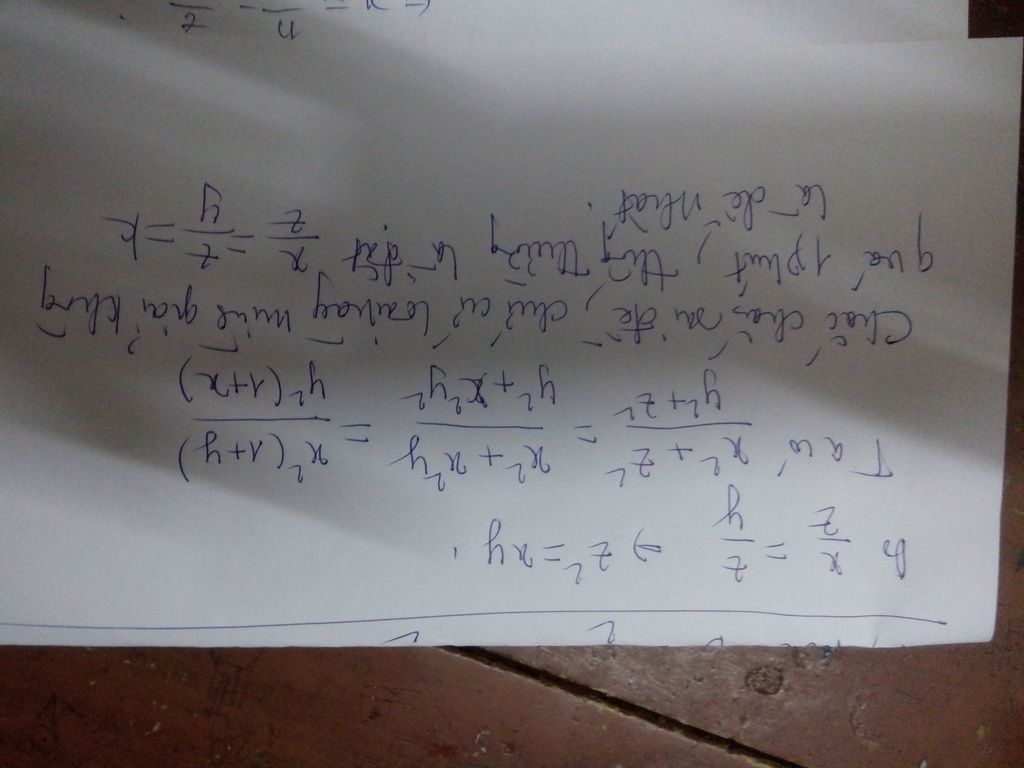 x/z = z/y ⇒ z² = xy.
Ta có (x² + z²)/(y² + z²) = (x² + x²y)/(y² + x²y²) = x²(1+y)/y²(1+x)
Chắc chắn sai đề, chứ cứ loại này mình giải không
quá 1 phút, thông thường là đặt x/z = z/y = k
là dễ nhất.